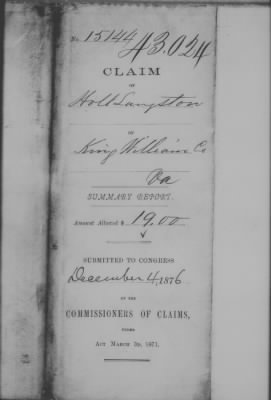 No. 15144 43.024
CLAIM
OF
Holt Langston
OF
King William Co
Va
SUMMARY REPORT.
Amount Allowed $ 19.00
SUBMITTED TO CONGRESS
December 4, 1876
BY THE
COMMISSIONERS OF CLAIMS,
UNDER
ACT MARCH 3D, 1871.